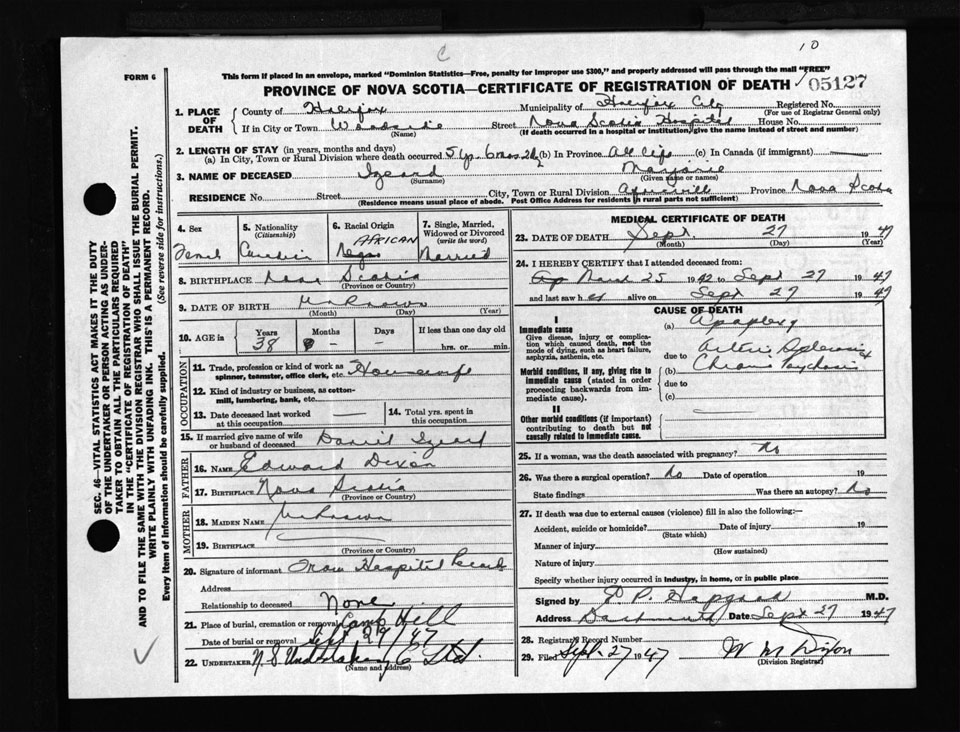 C
10
FORM 6
This form if placed in an envelope, marked "Dominion Statistics—Free, penalty for improper use $300," and properly addressed will pass through the mail "FREE"
PROVINCE OF NOVA SCOTIA—CERTIFICATE OF REGISTRATION OF DEATH 05127
1. PLACE OF DEATH County of Halifax Municipality of Halifax City Registered No.
(For use of Registrar General only)
If in City or Town Woodside Street Nova Scotia Hospital House No.
(Name) (If death occurred in a hospital or institution, give the name instead of street and number)
2. LENGTH OF STAY (in years, months and days)
(a) In City, Town or Rural Division where death occurred 5 yrs 6 mos 2 (b) In Province All life (c) In Canada (if immigrant)
3. NAME OF DECEASED Izeard Marjorie
(Surname) (Given name or names)
RESIDENCE No. Street City, Town or Rural Division Province Nova Scotia
(Residence means usual place of abode. Post Office Address for residents in rural parts not sufficient)
4. Sex 5. Nationality (Citizenship) 6. Racial Origin 7. Single, Married, Widowed or Divorced (write the word)
Female Canadian Negro AFRICAN Married
8. BIRTHPLACE Nova Scotia
(Province or Country)
9. DATE OF BIRTH Unknown
(Month) (Day) (Year)
10. AGE in Years Months Days If less than one day old
38 - - hrs. or min.
OCCUPATION
11. Trade, profession or kind of work as spinner, teamster, office clerk, etc. Housewife
12. Kind of industry or business, as cotton-mill, lumbering, bank, etc.
13. Date deceased last worked at this occupation —
14. Total yrs. spent in this occupation
15. If married give name of wife or husband of deceased Daniel Izeard
FATHER
16. NAME Edward Dixon
17. BIRTHPLACE Nova Scotia
(Province or Country)
MOTHER
18. MAIDEN NAME Unknown
19. BIRTHPLACE
(Province or Country)
20. Signature of informant From Hospital records
Address
Relationship to deceased None
21. Place of burial, cremation or removal Camp Hill
Date of burial or removal Sept 29/47
22. UNDERTAKER N.S Undertaking C Ltd.
(Name and address)
MEDICAL CERTIFICATE OF DEATH
23. DATE OF DEATH Sept. 27 1947
(Month) (Day) (Year)
24. I HEREBY CERTIFY that I attended deceased from:
March 25 1942 to Sept 27 1947
and last saw her alive on Sept 27 1947
CAUSE OF DEATH
I
Immediate cause
Give disease, injury or complication which caused death, not the mode of dying, such as heart failure, asphyxia, asthenia, etc.
(a) Apoplexy
due to Arterio Sclerosis
Morbid conditions, if any, giving rise to immediate cause (stated in order proceeding backwards from immediate cause).
(b) Chronic Psychosis
due to
(c)
II
Other morbid conditions (if important) contributing to death but not causally related to immediate cause.
25. If a woman, was the death associated with pregnancy? No
26. Was there a surgical operation? No Date of operation 19
State findings Was there an autopsy? No
27. If death was due to external causes (violence) fill in also the following:—
Accident, suicide or homicide? Date of injury 19
(State which)
Manner of injury
(How sustained)
Nature of injury
Specify whether injury occurred in industry, in home, or in public place
Signed by M.D.
Address Dartmouth Date Sept 27 1947
28. Registrar's Record Number
29. Filed Sept. 27 1947 W M Dixon
(Division Registrar)
SEC. 46—VITAL STATISTICS ACT MAKES IT THE DUTY
OF THE UNDERTAKER OR PERSON ACTING AS UNDERTAKER TO OBTAIN ALL THE PARTICULARS REQUIRED
IN THE "CERTIFICATE OF REGISTRATION OF DEATH"
AND TO FILE THE SAME WITH THE DIVISION REGISTRAR WHO SHALL ISSUE THE BURIAL PERMIT.
WRITE PLAINLY WITH UNFADING INK. THIS IS A PERMANENT RECORD.
Every item of information should be carefully supplied. (See reverse side for instructions.)